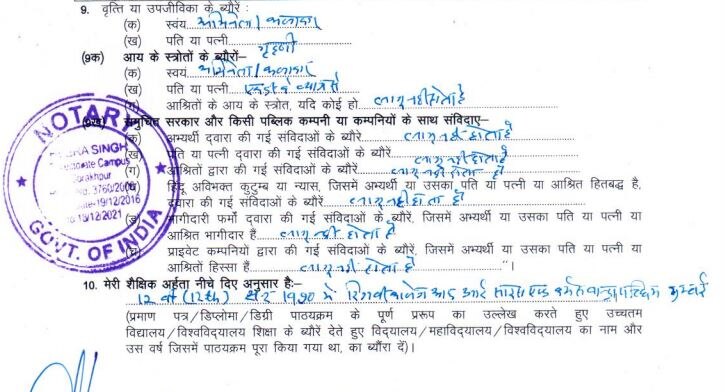 9. वृत्ति या उपजीविका के ब्यौरें :
(क) स्वंय अभिनेता/कलाकार
(ख) पति या पत्नी गृहणी
(9क) आय के स्त्रोतों के ब्यौरों–
(क) स्वयं अभिनेता/कलाकार
(ख) पति या पत्नी
(ग) आश्रितों के आय के स्त्रोत, यदि कोई हो लागू नही होता है
(9ख) समुचित सरकार और किसी पब्लिक कम्पनी या कम्पनियों के साथ संविदाए–
(क) अभ्यर्थी द्वारा की गई संविदाओं के ब्यौरे लागू नही होता है
(ख) पति या पत्नी द्वारा की गई संविदाओं के ब्यौरे लागू नही होता है
(ग) आश्रितों द्वारा की गई संविदाओं के ब्यौरे लागू नही होता है
(घ) हिंदू अविभक्त कुटुम्ब या न्यास, जिसमें अभ्यर्थी या उसका पति या पत्नी या आश्रित हितबद्ध है,
द्वारा की गई संविदाओं के ब्यौरे लागू नही होता है
(ङ) भागीदारी फर्मो द्वारा की गई संविदाओं के ब्यौरें, जिसमें अभ्यर्थी या उसका पति या पत्नी या
आश्रित भागीदार है लागू नही होता है
(च) प्राइवेट कम्पनियों द्वारा की गई संविदाओं के ब्यौरें, जिसमें अभ्यर्थी या उसका पति या पत्नी या
आश्रितों हिस्सा हैं लागू नही होता है "।
10. मेरी शैक्षिक अर्हता नीचे दिए अनुसार है:–
12 वीं (12th) सन् 1990 में रिजवी कालेज आफ आर्ट साइंस एण्ड कामर्स बान्द्रा पश्चिम मुम्बई
(प्रमाण पत्र/डिप्लोमा/डिग्री पाठयक्रम के पूर्ण प्ररूप का उल्लेख करते हुए उच्चतम
विद्यालय/विश्वविद्यालय शिक्षा के ब्यौरें देते हुए विद्यालय/महाविद्यालय/विश्वविद्यालय का नाम और
उस वर्ष जिसमें पाठयक्रम पूरा किया गया था, का ब्यौंरा दें)।
NOTARY
SINGH
Campus
Gorakhpur
No. 3760/2000
19/12/2016
18/12/2021
GOVT. OF INDIA